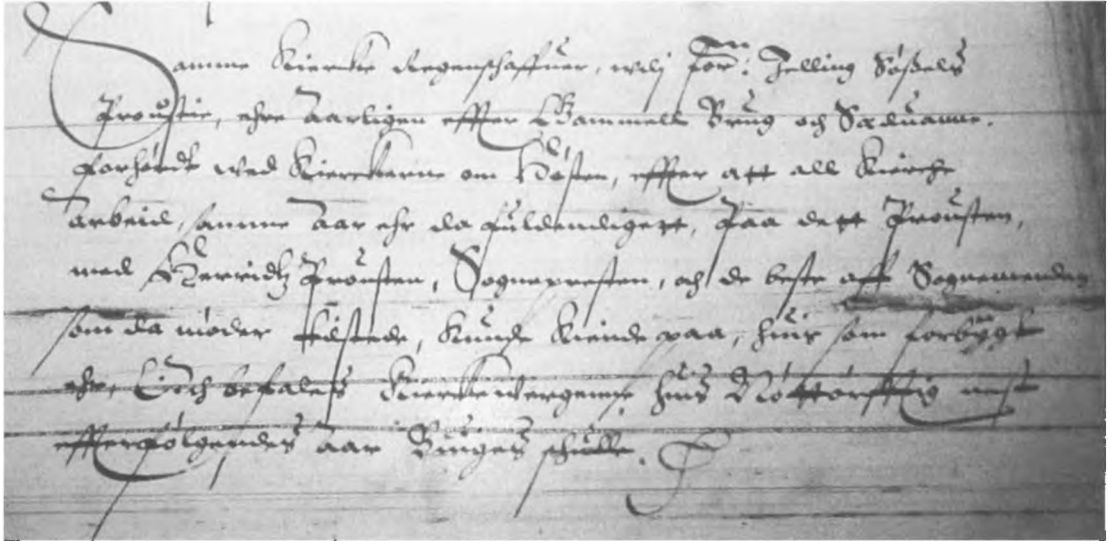 Samme Kiercke Regenschaffuer, udj for: Jelling Sÿßels
Proustie, ehre Aarligen effter Gammell Brug och Sæduanne,
forhørdt wed Kierckerne om Høsten, effter att all Kierche
arbeid, samme Aar ehr da fuldendigett, Paa dett Prousten,
med Herridtz Prousten, Sognepresten, och de beste aff Sognemenden
som da møder tilstede, kunde kiende paa, huis som forbÿggt
ehr, Eÿoch befales Kierckewergerne huis Nøttørfftig nest
effterfølgendes aar Bÿiges schulle.